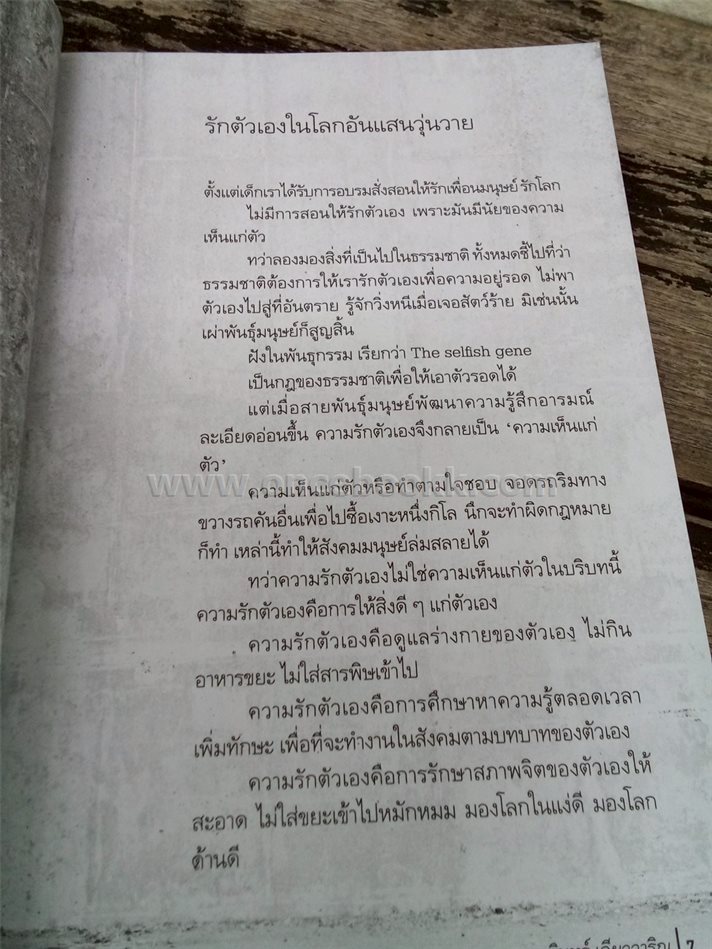 รักตัวเองในโลกอันแสนวุ่นวาย
ตั้งแต่เด็กเราได้รับการอบรมสั่งสอนให้รักเพื่อนมนุษย์ รักโลก
ไม่มีการสอนให้รักตัวเอง เพราะมันมีนัยของความ
เห็นแก่ตัว
ทว่าลองมองสิ่งที่เป็นไปในธรรมชาติ ทั้งหมดชี้ไปที่ว่า
ธรรมชาติต้องการให้เรารักตัวเองเพื่อความอยู่รอด ไม่พา
ตัวเองไปสู่ที่อันตราย รู้จักวิ่งหนีเมื่อเจอสัตว์ร้าย มิเช่นนั้น
เผ่าพันธุ์มนุษย์ก็สูญสิ้น
ฝังในพันธุกรรม เรียกว่า The selfish gene
เป็นกฎของธรรมชาติเพื่อให้เอาตัวรอดได้
แต่เมื่อสายพันธุ์มนุษย์พัฒนาความรู้สึกอารมณ์
ละเอียดอ่อนขึ้น ความรักตัวเองจึงกลายเป็น ‘ความเห็นแก่
ตัว’
ความเห็นแก่ตัวหรือทำตามใจชอบ จอดรถริมทาง
ขวางรถคันอื่นเพื่อไปซื้อเงาะหนึ่งกิโล นึกจะทำผิดกฎหมาย
ก็ทำ เหล่านี้ทำให้สังคมมนุษย์ล่มสลายได้
ทว่าความรักตัวเองไม่ใช่ความเห็นแก่ตัวในบริบทนี้
ความรักตัวเองคือการให้สิ่งดี ๆ แก่ตัวเอง
ความรักตัวเองคือดูแลร่างกายของตัวเอง ไม่กิน
อาหารขยะ ไม่ใส่สารพิษเข้าไป
ความรักตัวเองคือการศึกษาหาความรู้ตลอดเวลา
เพิ่มทักษะ เพื่อที่จะทำงานในสังคมตามบทบาทของตัวเอง
ความรักตัวเองคือการรักษาสภาพจิตของตัวเองให้
สะอาด ไม่ใส่ขยะเข้าไปหมักหมม มองโลกในแง่ดี มองโลก
ด้านดี